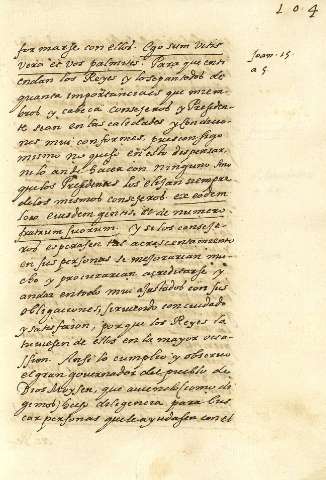 104
formarse con ellos. Ego sum vitis
vera et vos palmites. Para que enti
endan los Reyes y los
quanta importancia es que miem
bros, y cabeça consejeros y Presiden
te sean en las calidades y
nes mui conformes, pues consigo
mismo no quiso en esto dispensar,
ni lo an de hacer con ninguno. Sino
que los Presidentes los elijan siempre
de los mismos consejeros ex eodem
loco eiusdem gentis, et de numero
fratrum suorum. Y si los conseje
ros esperasen tal acrescentamiento
en sus personas se mejorarian mu
cho y procurarian acreditarse y
andar en todo mui ajustados con sus
obligaciones, sirviendo con cuidado
y satisfaçion, porque los Reyes la
tuviesen de ellos en la mayor oca
ssion. Ansi lo cumplio y observo
el gran governador del pueblo de
Dios Moysen, que
gimos) hizo diligencia para bus
car personas que le ayudasen con el
Joan. 15.
a 5